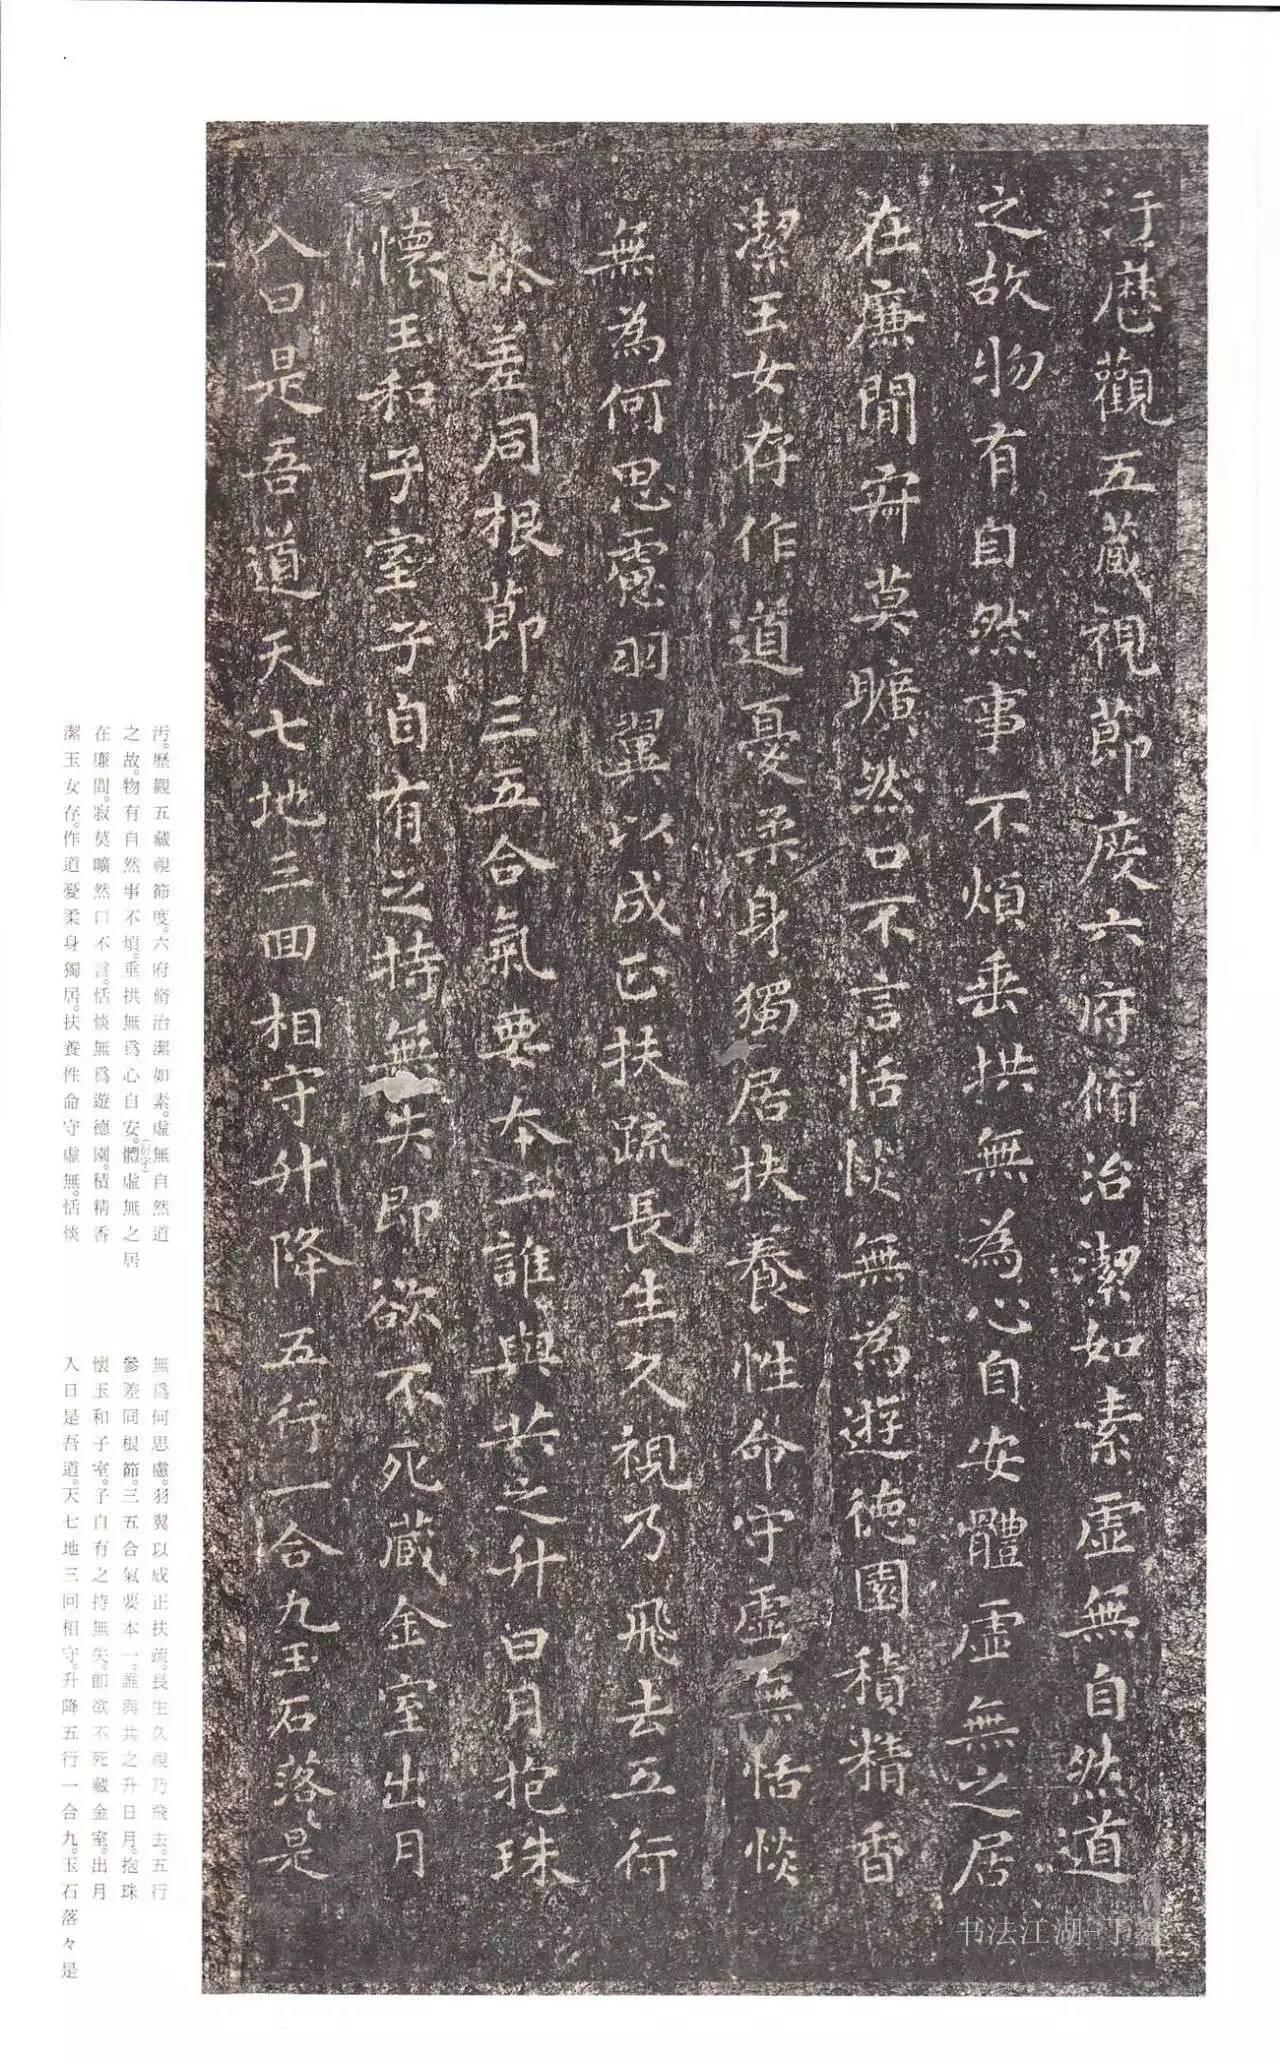 汙歷觀五藏視節度六府脩治潔如素虛無自然道
之故物有自然事不煩垂拱無為心自安體虛無之居
在廉間寂莫曠然口不言恬惔無為遊德園積精香
潔玉女存作道憂柔身獨居扶養性命守虛無恬惔
無為何思慮羽翼以成正扶疏長生久視乃飛去五行
參差同根節三五合氣要本一誰與共之升日月抱珠
懷玉和子室子自有之持無失即欲不死藏金室出月
入日是吾道天七地三回相守升降五行一合九玉石落〻是
汚。歷觀五藏視節度。六府脩治潔如素。虛無自然道
之故。物有自然事不煩。垂拱無爲心自安。體(衍字)虛無之居
在廉間。寂莫曠然口不言。恬惔無爲遊德園。積精香
潔玉女存。作道憂柔身獨居。扶養性命守虛無。恬惔
無爲何思慮。羽翼以成正扶疏。長生久視乃飛去。五行
參差同根節。三五合氣要本一。誰與共之升日月。抱珠
懷玉和子室。子自有之持無失。卽欲不死藏金室。出月
入日是吾道。天七地三回相守。升降五行一合九。玉石落々是
书法江湖-丁鑫